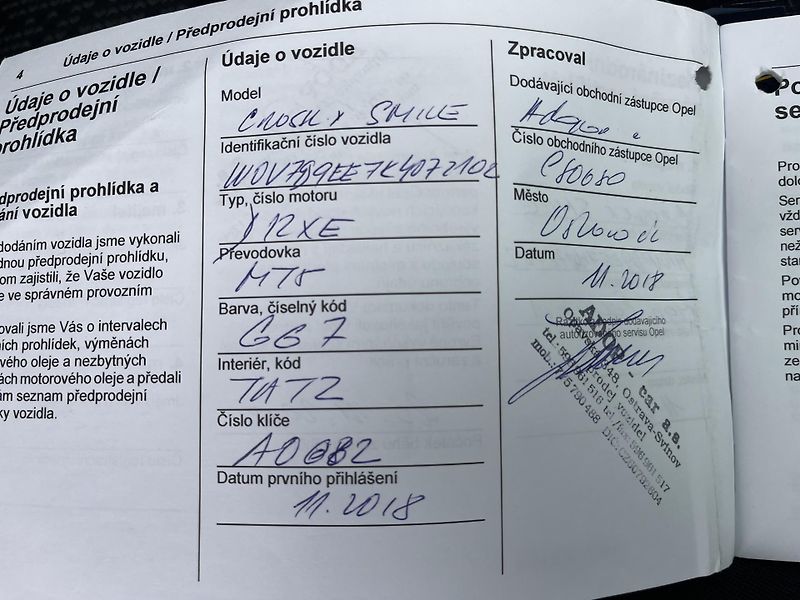 4
Údaje o vozidle / Předprodejní prohlídka
Údaje o vozidle /
Předprodejní
rohlídka
dprodejní prohlídka a
ání vozidla
dodáním vozidla jsme vykonali
dnou předprodejní prohlídku,
om zajistili, že Vaše vozidlo
e ve správném provozním
ovali jsme Vás o intervalech
ních prohlídek, výměnách
vého oleje a nezbytných
ách motorového oleje a předali
ám seznam předprodejní
ky vozidla.
Údaje o vozidle
Model
SMILE
Identifikační číslo vozidla
Typ, číslo motoru
Převodovka
MT5
Barva, číselný kód
G67
Interiér, kód
TATZ
Číslo klíče
Datum prvního přihlášení
11.2018
Zpracoval
Dodávající obchodní zástupce Opel
Číslo obchodního zástupce Opel
C80680
Město
Datum
11.2018
Razítko a podpis dodávajícího
autorizovaného servisu Opel
- car a.s.
Ostrava-Svinov
Prodej vozidel
Po
se
Pro
dolo
Ser
vžd
serv
než
star
Pot
mo
pří
Pro
min
ze
na